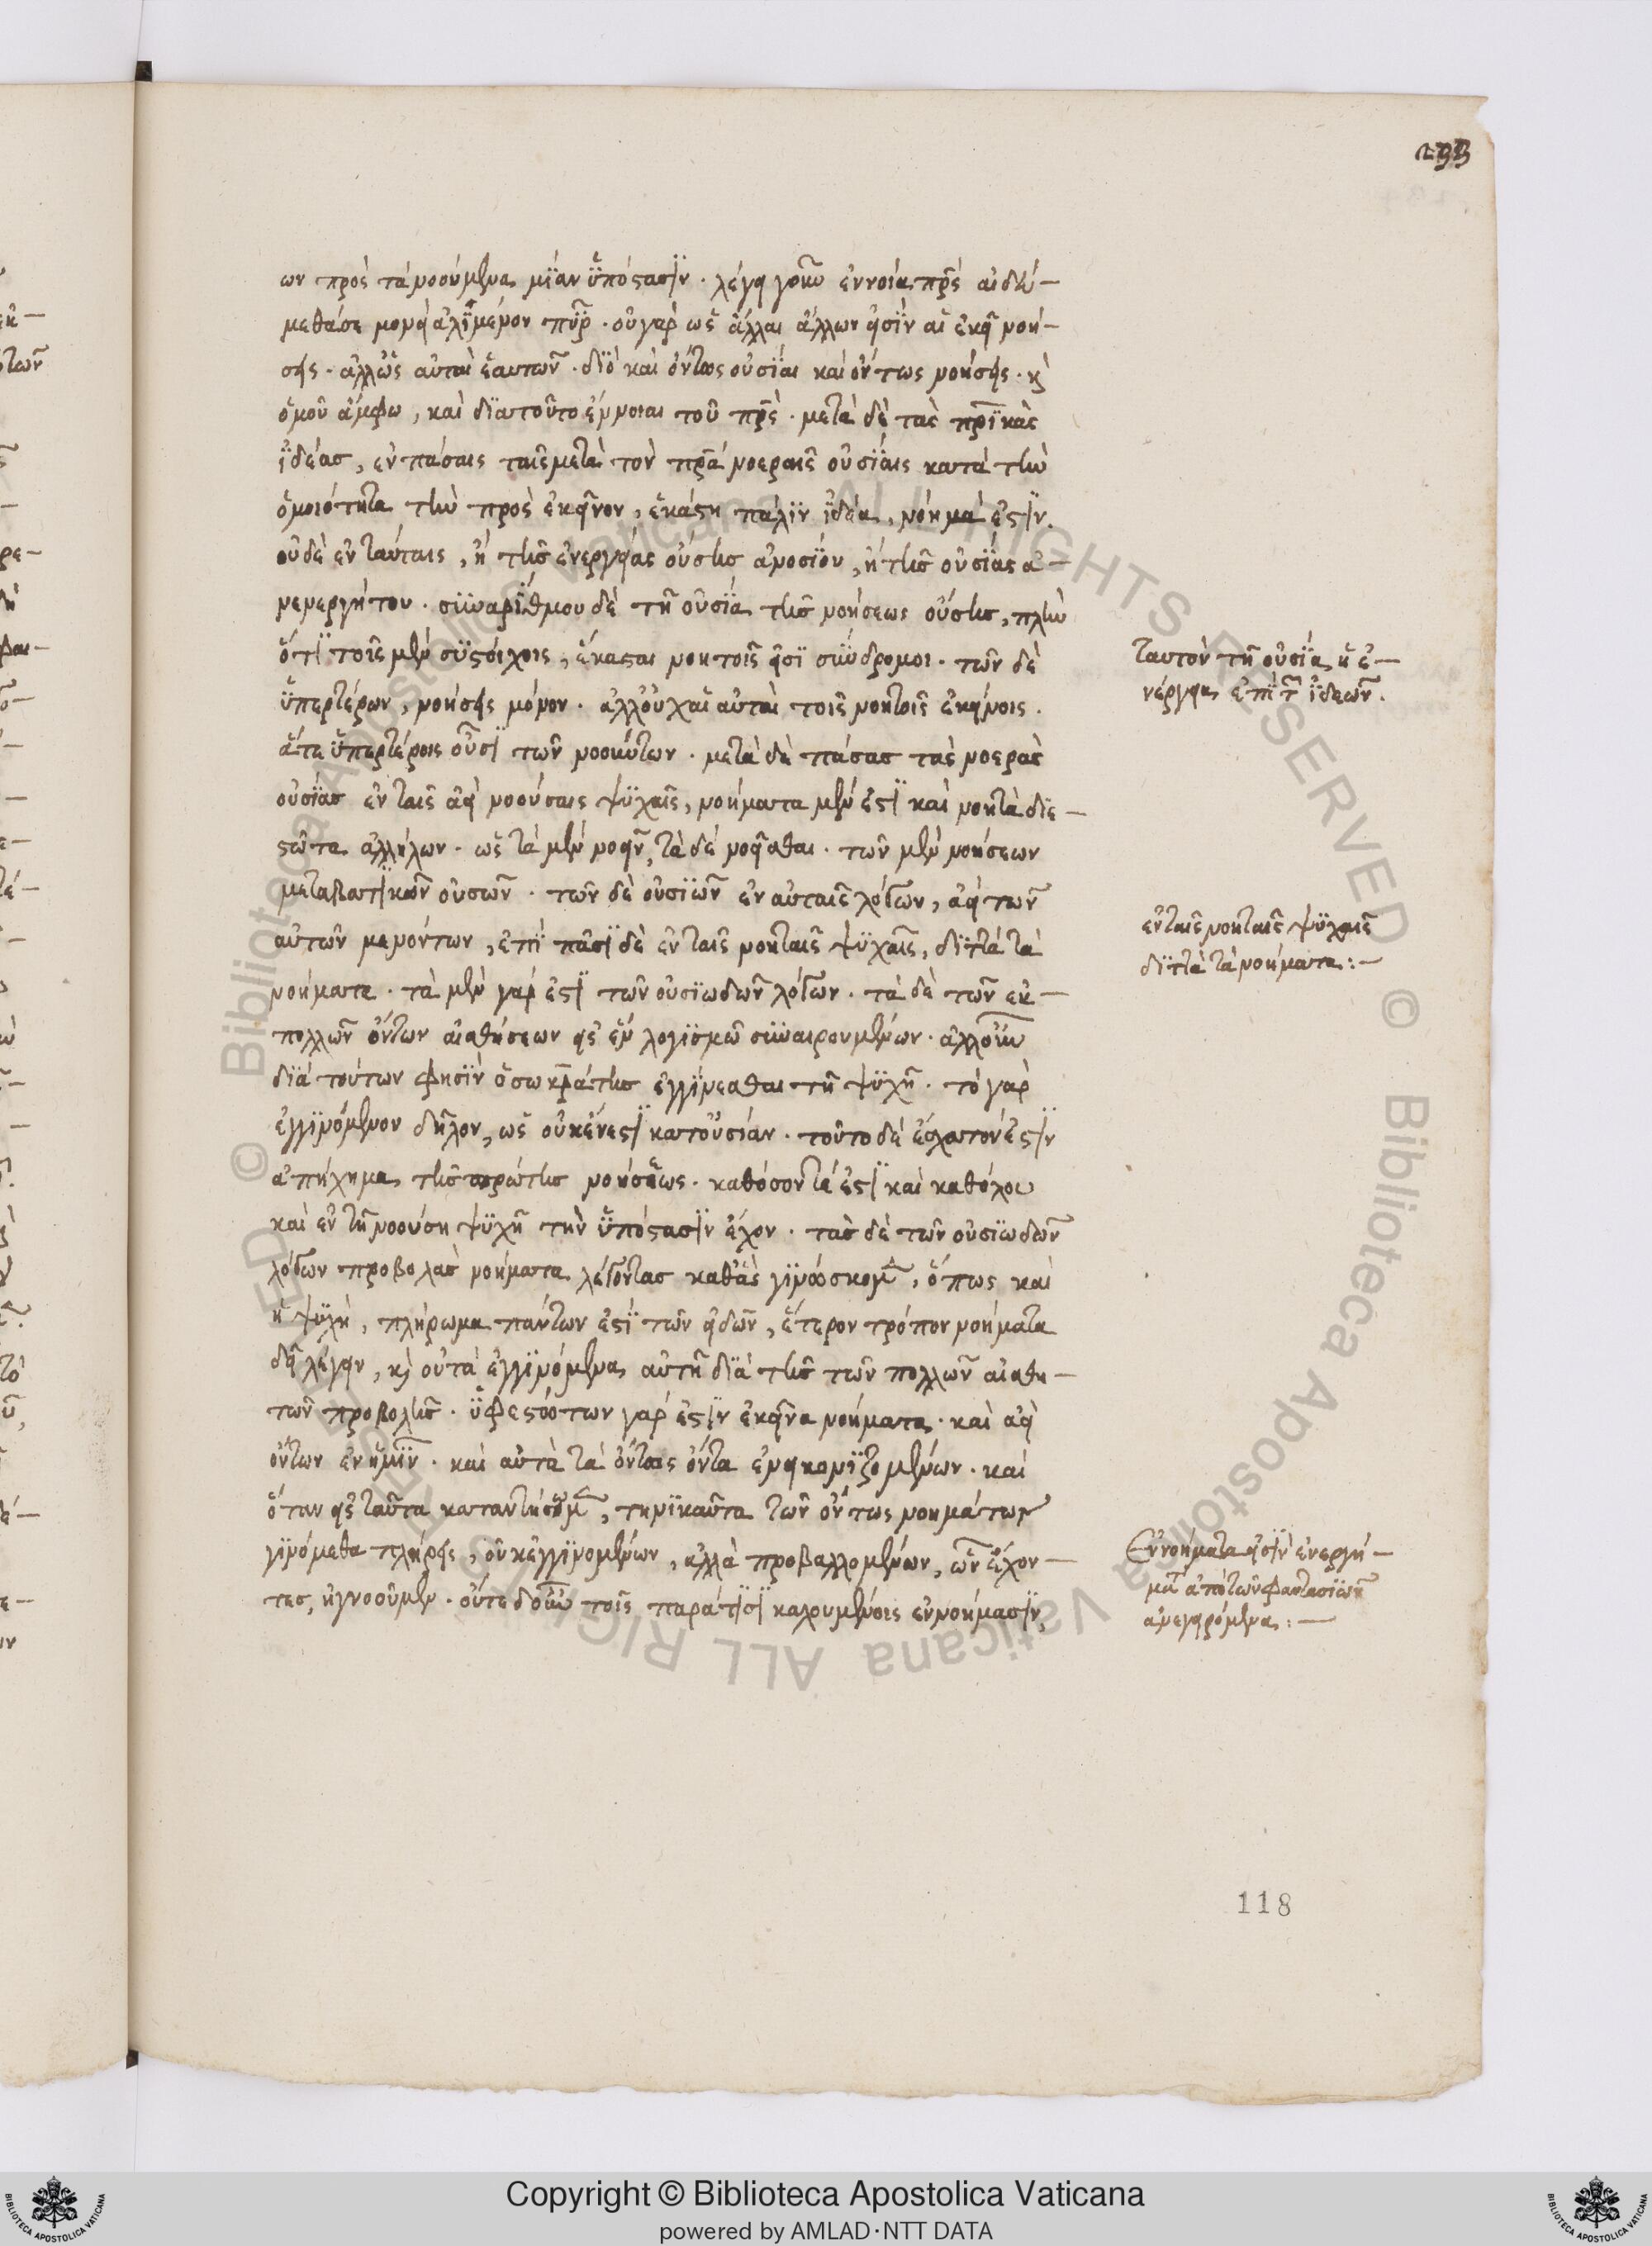 ων πρὸς τὰ νοούμενα, μίαν ὑπόστασιν. λέγει γοῦν ἐννοίᾳ πρς αἰδὼ-
ὁμοῦ ἄμφω, καὶ διατοῦτο ἔννοιαι τοῦ πρς. μετὰ δὲ τὰς πρικὰς
ἰδέας, ἐν πάσαις ταῖς μετὰ τὸν πρα νοεραῖς οὐσίαις κατὰ τὴν
ὁμοιότητα τὴν πρὸς ἐκεῖνον, ἑκάστη πάλιν ἰδέα, νόημά ἐστιν.
οὐδὲ ἐν ταύταις, ἢ τῆς ἐνεργείας οὔσης ἀνοσίου, ἢ τῆς οὐσίας ἀ-
νενεργήτου. συναρίθμου δὲ τῆ οὐσία τῆς νοήσεως οὔσης, πλὴν
ὅτι τοῖς μὲν συστοίχοις, ἕκασται νοητοῖς εἰσὶ σύνδρομοι. τῶν δὲ
ὑπερτέρων, νοήσεις μόνον. ἀλλ' οὐχ αἱ αὐταὶ τοῖς νοητοῖς ἐκείνοις.
ἅτε ὑπερτέροις οὖσι τῶν νοούντων. μετὰ δὲ πάσας τὰς νοερὰς
οὐσίας ἐν ταῖς ἀεὶ νοούσαις ψυχαῖς, νοήματα μέν ἐστι καὶ νοητὰ διε-
στῶτα ἀλλήλων. ὡς τὰ μὲν νοεῖν, τὰ δὲ νοεῖσθαι. τῶν μὲν νοήσεων
μεταβατικῶν οὐσῶν. τῶν δὲ οὐσιῶν ἐν αὐταῖς λόγων, ἀεὶ τῶν
αὐτῶν μενόντων, ἐπὶ πᾶσι δὲ ἐν ταῖς νοηταῖς ψυχαῖς, διττὰ τὰ
νοήματα. τὰ μὲν γάρ ἐστι τῶν οὐσιωδῶν λόγων. τὰ δὲ τῶν ἐκ-
πολλῶν ὄντων αἰσθήσεων εἰς ἓν λογισμῶ συναιρουμένων. ἀλλ' οὖν
διὰ τούτων φησὶν ὁ σωκράτης ἐγγίνεσθαι τῆ ψυχῆ. τὸ γὰρ
ἐγγινόμενον δῆλον, ὡς οὐκ ἔνεστι κατ' οὐσίαν. τοῦτο δὲ ἔσχατον ἐστιν
ἀπήχημα, τῆς πρώτης νοήσεως. καθόσον τέ ἐστι καὶ καθόλου
καὶ ἐν τῆ νοούση ψυχῆ τὴν ὑπόστασιν ἔχον. τὰς δὲ τῶν οὐσιωδῶν
λόγων προβολὰς νοήματα λέγοντας καθ' ἃς γινώσκομεν, ὅπως καὶ
ἡ ψυχὴ, πλήρωμα πάντων ἐστὶ τῶν εἰδῶν, ἕτερον τρόπον νοήματα
δεῖ λέγειν, κ οὐ τὰ ἐγγινόμενα αὐτῆ διὰ τῆς τῶν πολλῶν αἰσθη-
τῶν προβολῆς. ὑφεστώτων γάρ ἐστιν ἐκεῖνα νοήματα. καὶ ἀεὶ
ὄντων ἐν ἡμῖν. καὶ αὐτὰ τὰ ὄντως ὄντα ἐνεικονιζομένων. καὶ
ὅταν εἰς ταῦτα καταντήσωμεν, τηνικαῦτα τῶν ὄντως νοημάτων
γινόμεθα πλήρεις, οὐκ ἐγγινομένων, ἀλλὰ προβαλλομένων, ὧν ἔχον-
τες, ἠγνοοῦμεν. οὔτε δ' οὖν τοῖς παρά τισι καλουμένοις ἐννοήμασιν
ταυτὸν τῆ οὐσία, ἡ ἐ-
νέργεια, ἐπὶ τ ἰδεῶν.
ἐν ταῖς νοηταῖς ψυχαῖς
διττὰ τὰ νοήματα:-
Ἐννοήματα εἰσὶν ἐνεργή-
ματ ἀπὸ τῶν φαντασιῶν
ἀνεγειρόμενα:-
118
Copyright © Biblioteca Apostolica Vaticana
powered by AMLAD·NTT DATA